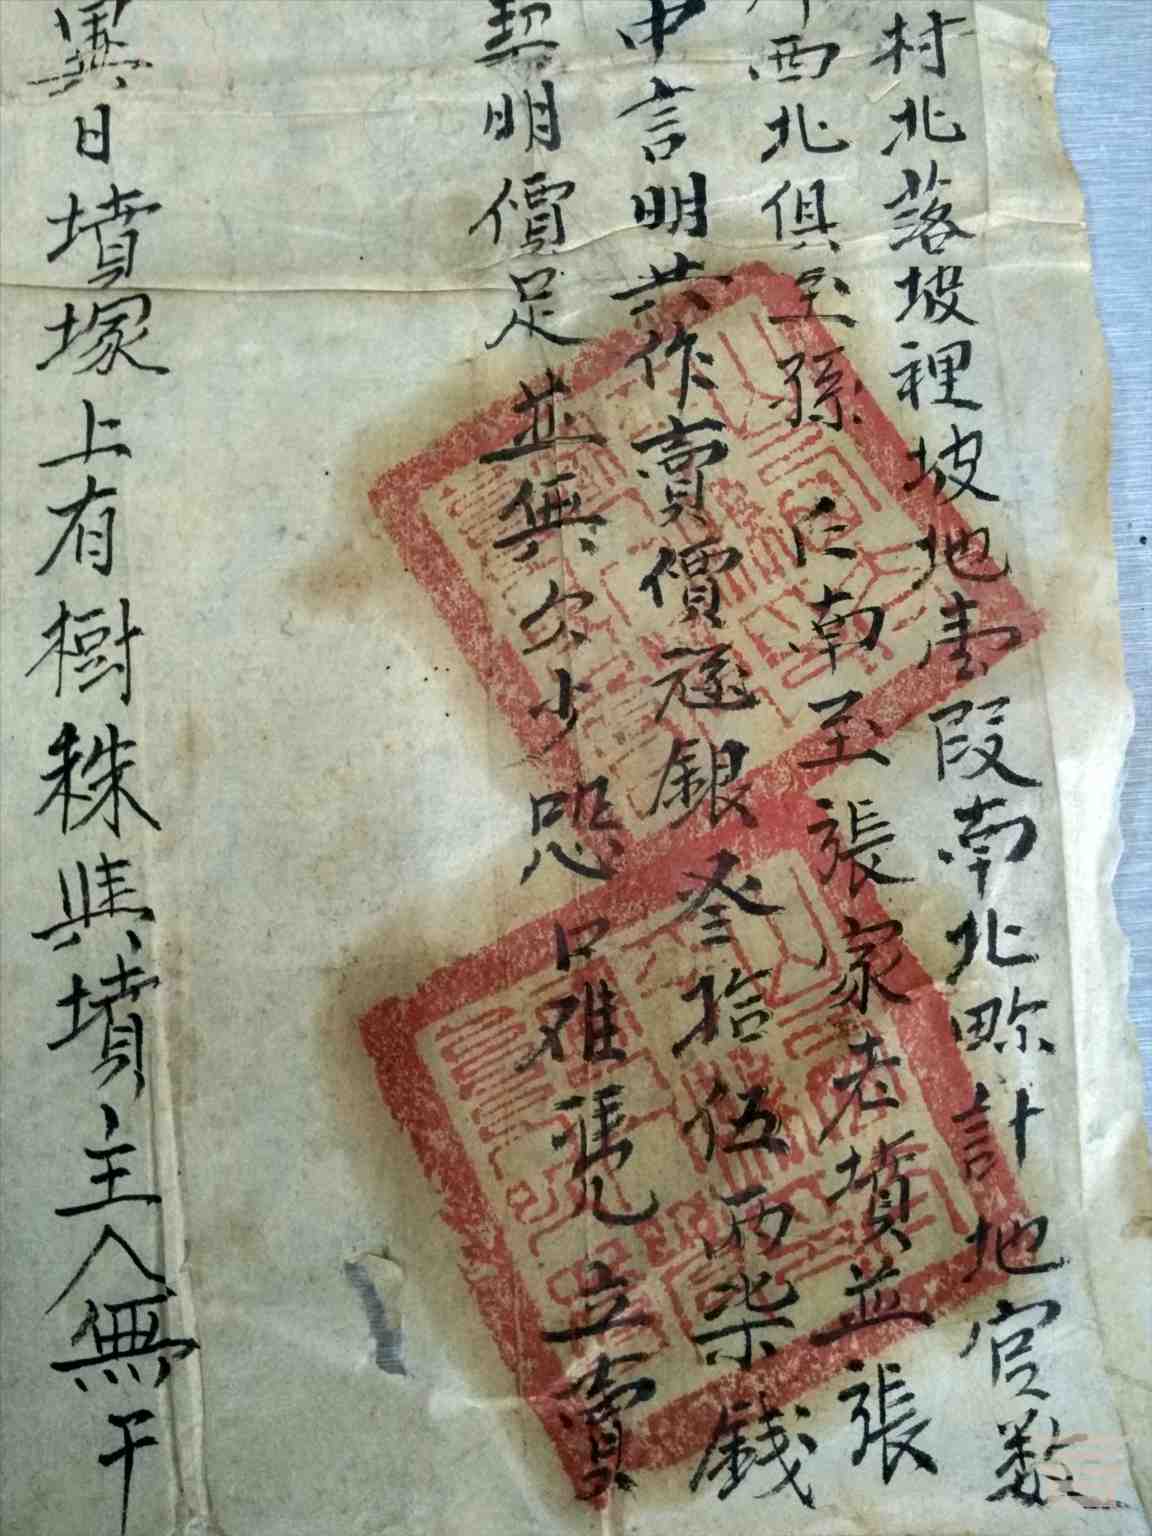 村北落坡裡坡地壹段南北畛計地官数
西北俱至孫仁南至張家老墳並張
中言明共作賣價逐銀叄拾伍両柒錢
契明價足並無欠少恐口难凭立賣
異日墳塚上有樹株與墳主人無干